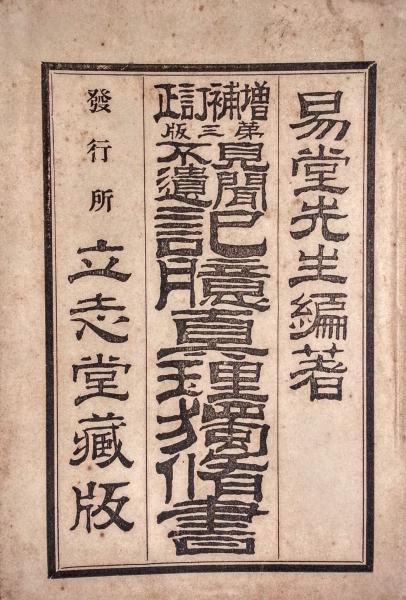 易堂先生編著
增補訂正
第三版
見聞
不遺
記臆真理獨脩書
發行所 立志堂藏版